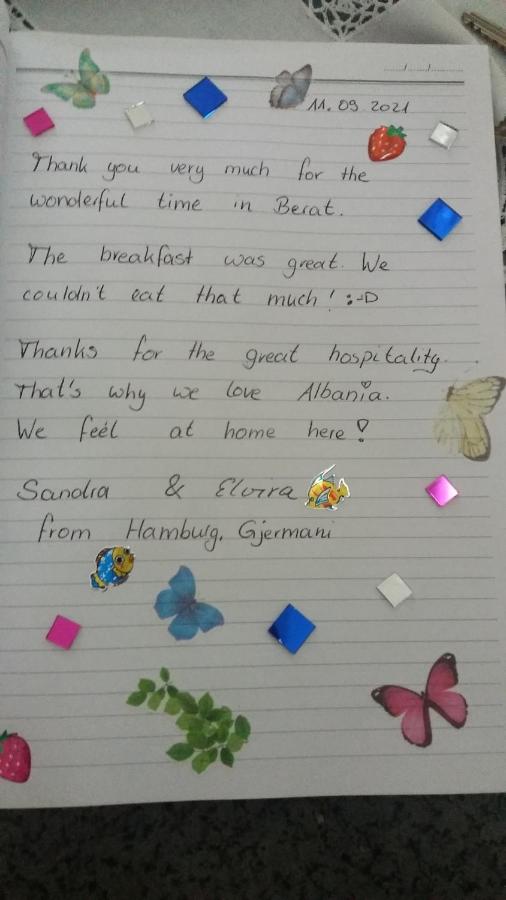 11.09.2021
Thank you very much for the
wonderful time in Berat.
The breakfast was great. We
couldn't eat that much! :-D
Thanks for the great hospitality.
That's why we love Albania.
We feel at home here!
Sandra & Elvira
from Hamburg, Gjermani